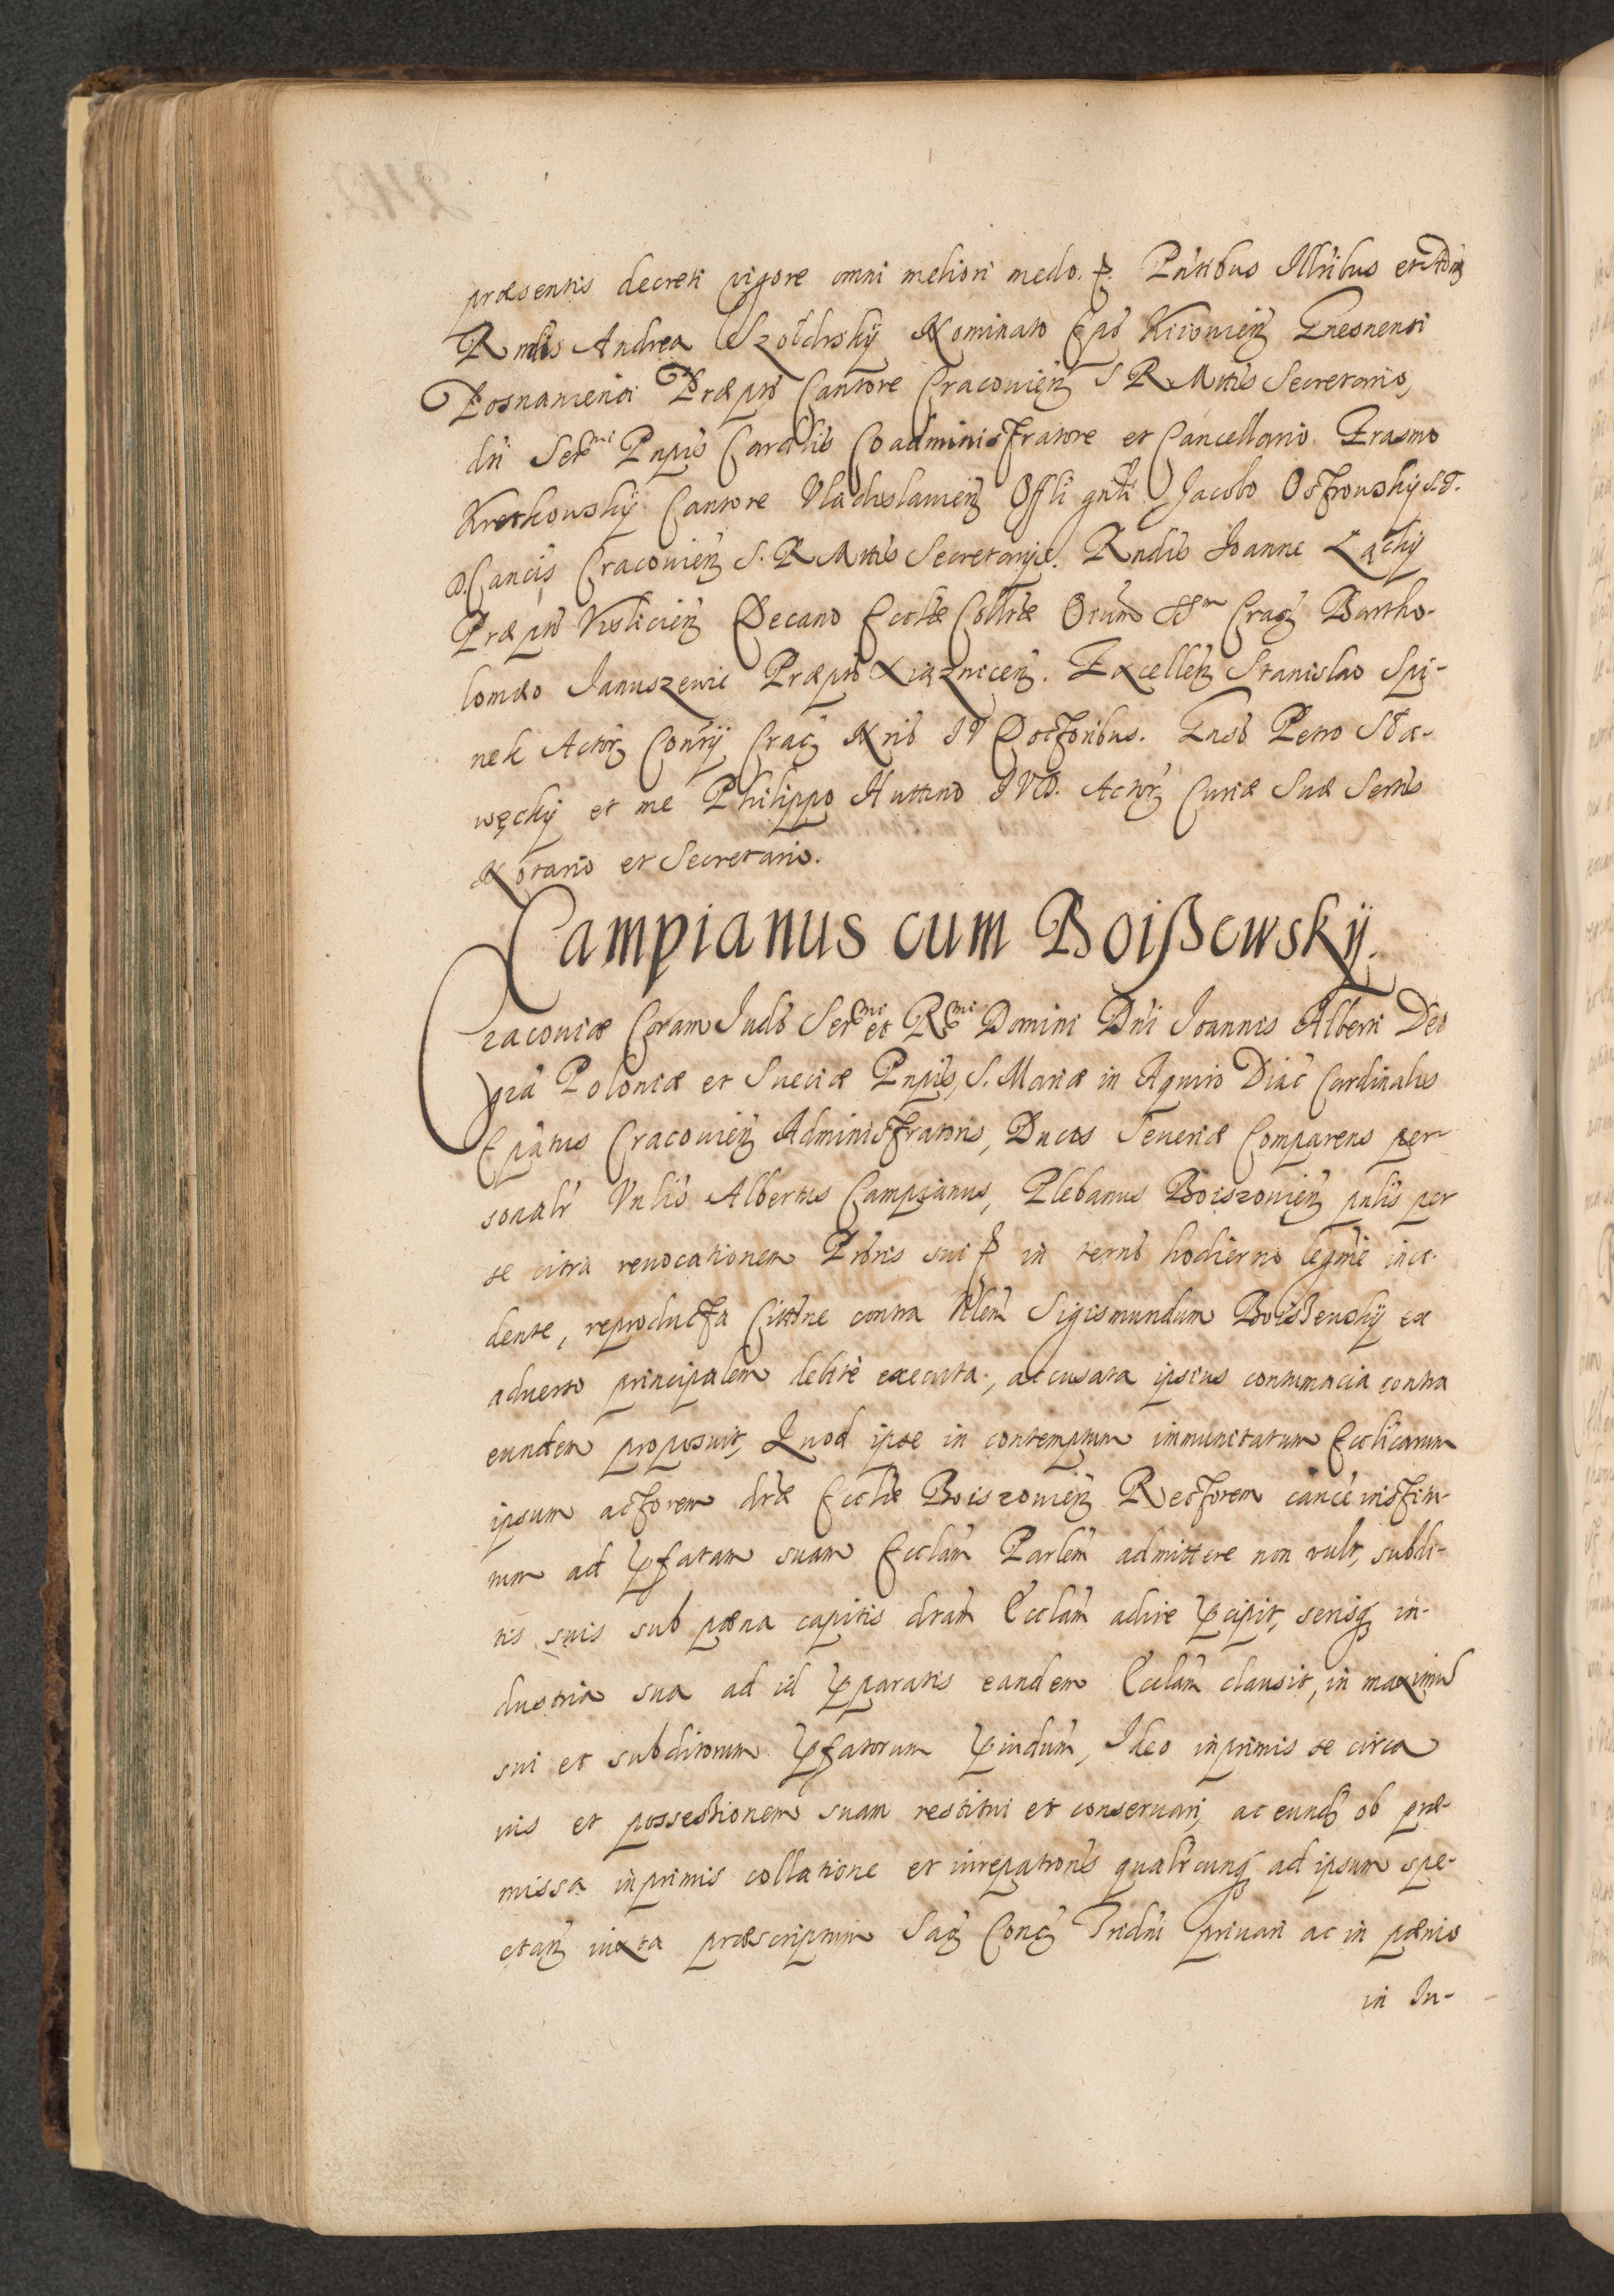 præsentis decreti vigore omni meliori modo. Pntibus Illribus et Adm
Rndis Andrea Szołdrskÿ Nominato Epo Kiiovien Gnesnensi
Posnaniensi Præpto Cantore Cracovien S R Mttis Secretario,
dti Sermi Pnpis Cardlis Coadministratore et Cancellario. Erasmo
Kretkowskÿ Cantore Vladislavien Offli gnli Jacobo Ostrowskÿ S.T.
D. Cancis Cracovien S. R Mttis Secretarijs. Rndis Joanne Ląckÿ
Præpto Vislicien Decano Ecclæ Colltæ Orum SSrm Crac Bartho-
lomæo Januszewic Præpto Xiąznicen. Excellen Stanislao Spi-
nek Actor Consrÿ Crac Nrio IV Doctoribus. Gnso Petro Sła-
węckÿ et me Philippo Huttino IVD. Actor Curiæ Suæ Sertis
Notario et Secretario.
Campianus cum Boißowskÿ.
Cracoviæ Coram Judo Sermi et Rmi Domini Dni Joannis Alberti Dei
gra Poloniæ et Sueciæ Pnpis, S. Mariæ in Aquiro Diac Cardinalis
Epatus Cracovien Administratoris, Ducis Severiæ Comparens per-
sonalr Vnlis Albertus Campianus, Plebanus Boiszovien pnlis per
se citra revocationem Prōris sui in termo hodierno legme inci-
dente, reproducta Cittone contra Nlem Sigismundum Boißewskÿ ex
adverso principalem debite executa, accusata ipsius contumacia contra
eundem proposuit, Quod ipse in contemptum immunitatum Ecclicarum
ipsum actorem dtæ Ecclæ Boiszovien Rectorem cance institu-
tum ad pfatam suam Ecclam Parlem admittere non vult, subdi-
tis suis sub pæna capitis dtam Ecclam adire pcipit, serisq in-
dustria sua ad id pparatis eandem Ecclam clausit, in maximu
sui et subditorum pfatorum piudum, Ideo inprimis se circa
ius et possessionem suam restitui et conservari, ac eund ob præ-
missa inprimis collatione et iurepatronis qualrcunq ad ipsum spe-
ctan iuxta præscriptum Sac Conc Tridni privari ac in pænis
in In-